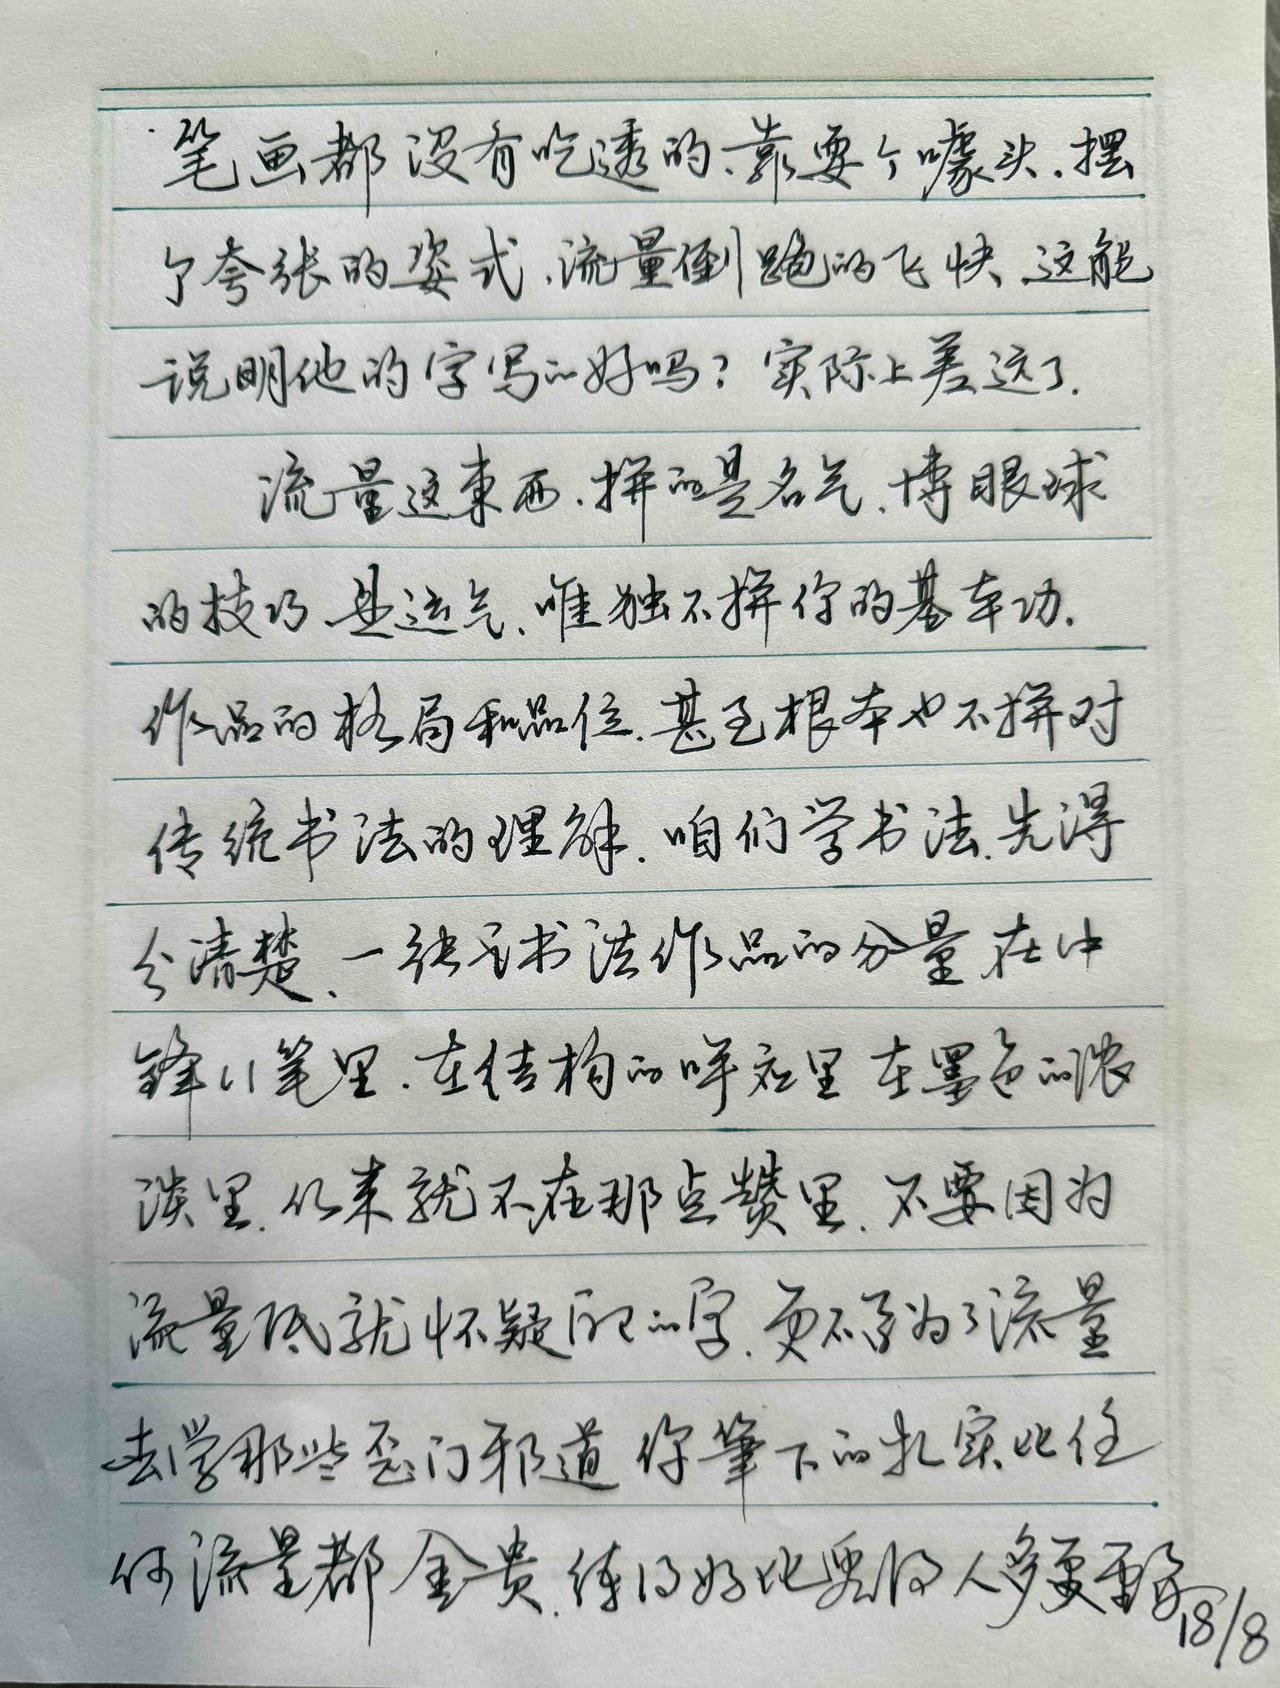 笔画都没有吃透的、靠耍个噱头、摆
个夸张的姿式、流量倒跑的飞快、这能
说明他的字写的好吗？实际上差远了.
流量这東西、拼的是名气、博眼球
的技巧是运气、唯独不拼你的基本功.
作品的格局和品位、甚至根本也不拼对
传统书法的理解、咱们学书法、先得
分清楚、一张毛书法作品的分量在中
锋行笔里、在结构的呼应里在墨色的浓
淡里、从来就不在那点赞里、不要因为
流量低就怀疑自己的字、更不要为了流量
去学那些歪门邪道你筆下的扎实比任
何流量都金贵、练得好比红得人多更重要
18/8